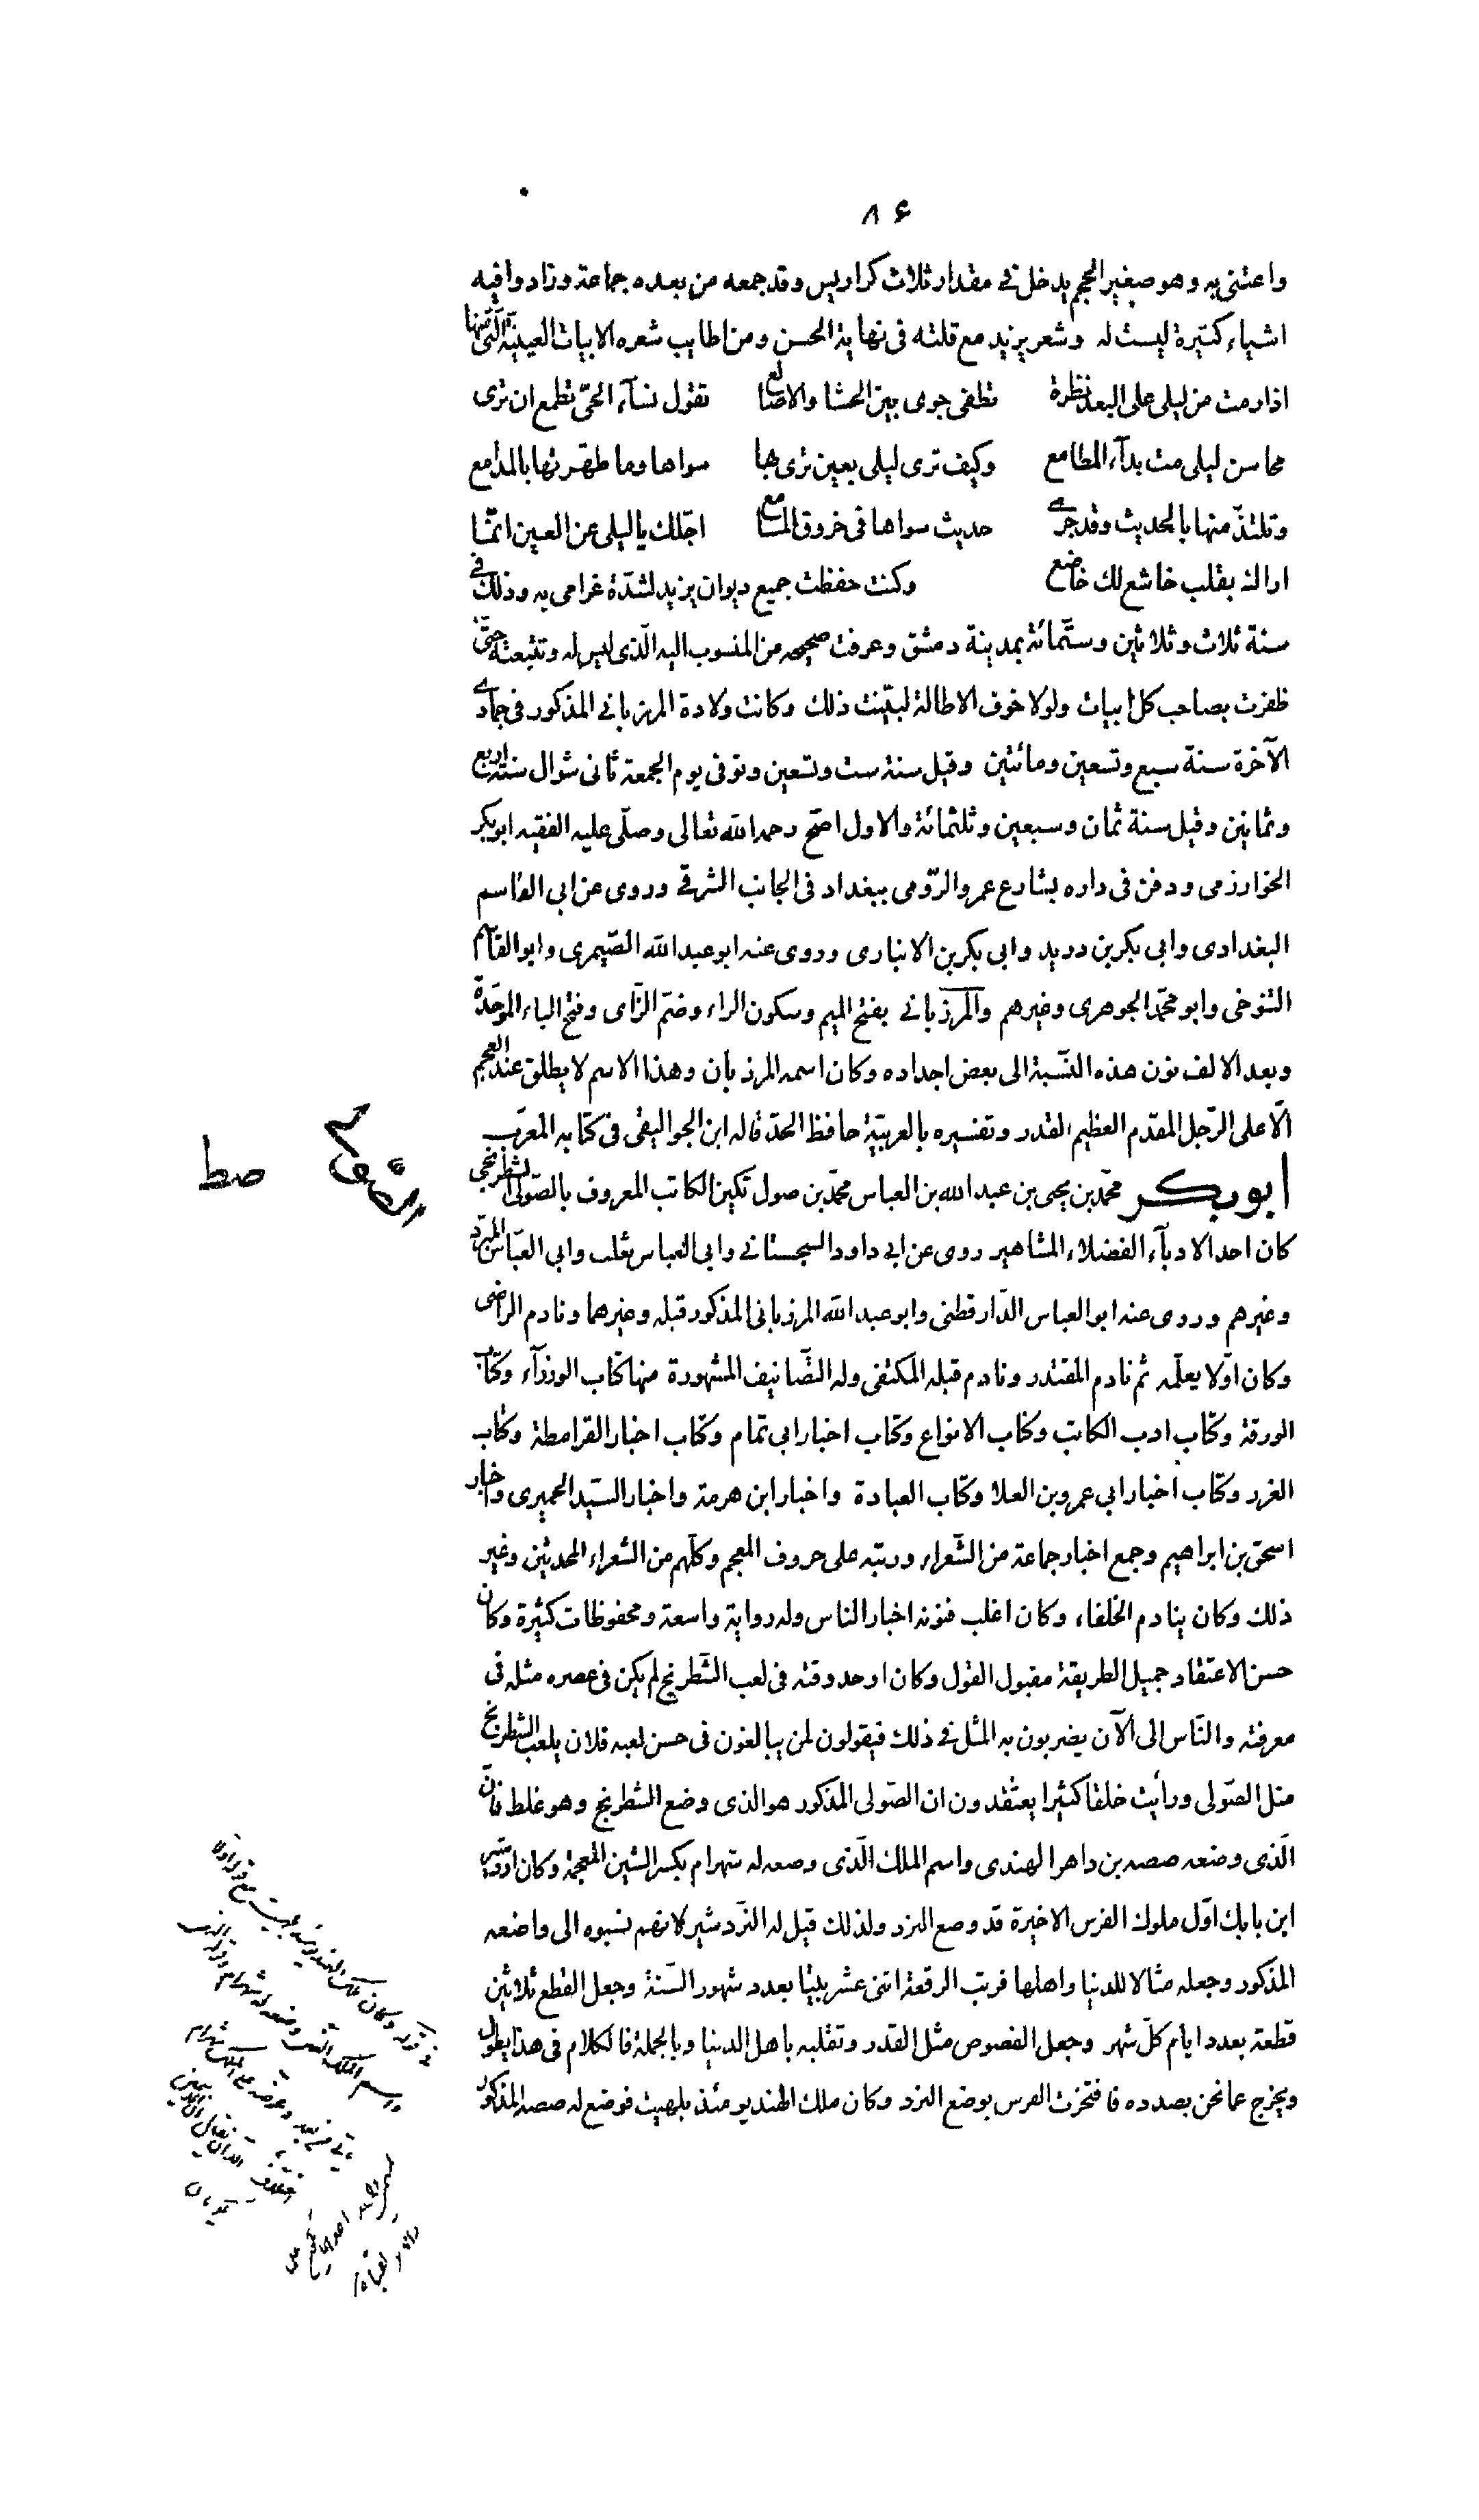 ٨۶
واعتنى به وهو صغير الحجم يدخل في مقدار ثلاث كراريس وقد جمعه من بعده جماعة وزادوا فيه
اشياء كثيرة ليست له وشعر يزيد مع قلته فى نهاية الحسن ومن اطايب شعره الابيات العينيّة الّتى منها
اذا رمت من ليلى على البعد نظرة تطفى جوى بين الحشا والاضالع تقول نسآء الحىّ تطمع ان ترى
محاسن ليلى مت بدآء المطامع وكيف ترى ليلى بعين ترى بها سواها وما طهّرتها بالمدامع
وتلتذّ منها بالحديث وقد جرى حديث سواها فى خروق المسامع اجّلك يا ليلى عن العين انّما
اراك بقلب خاشع لك خاضع وكنت حفظت جميع ديوان يزيد لشدّة غرامى به وذلك في
سنة ثلاث وثلاثين وستّمائة بمدينة دمشق وعرفت صحيحه من المنسوب اليه الّذى ليس له وتتبعته حتّى
ظفرت بصاحب كل ابيات ولولا خوف الاطالة لبيّنت ذلك وكانت ولادة المرزباني المذكور فى جمادى
الآخرة سنة سبع وتسعين ومائتين وقيل سنة ست وتسعين وتوفى يوم الجمعة ثانى شوال سنة اربع
وثمانين وقيل سنة ثمان وسبعين وثلثمائة والاول اصحّ رحمه الله تعالى وصلّى عليه الفقيه ابوبكر
الخوارزمى ودفن فى داره بشارع عمرو الرّومى ببغداد فى الجانب الشرقي وروى عن ابى القاسم
البغدادى وابى بكر بن دريد وابى بكر بن الانبارى وروى عنه ابو عبد الله الصّيمرى وابو القاسم
التنوخى وابو محمّد الجوهرى وغيرهم والمرزباني بفتح الميم وسكون الراء وضمّ الزّاى وفتح الباء الموحّدة
وبعد الالف نون هذه النّسبة الى بعض اجداده وكان اسمه المرزبان وهذا الاسم لا يطلق عند العجم
الّا على الرّجل المقدم العظيم القدر وتفسيره بالعربيّة حافظ الحدّ قاله ابن الجواليقى فى كتابه المعرّب
ابوبكر محمّد بن يحيى بن عبد الله بن العباس محمّد بن صول تكين الكاتب المعروف بالصّولى الشطرنجى
صط
كان احد الادبآء الفضلاء المشاهير روى عن ابي داود السجستاني وابي العباس ثعلب وابى العبّاس المبرّد
وغيرهم وروى عنه ابو العباس الدّارقطنى وابو عبد الله المرزبانى المذكور قبله وغيرهما ونادم الراضى
وكان اوّلا يعلّمه ثم نادم المقتدر ونادم قبله المكتفى وله التّصانيف المشهورة منها كتاب الوزرآء وكتاب
الورقة وكتاب ادب الكاتب وكتاب الانواع وكتاب اخبار ابى تمام وكتاب اخبار القرامطة وكتاب
الغرر وكتاب اخبار ابي عمرو بن العلا وكتاب العبادة واخبار ابن هرمة واخبار السّيد الحميرى واخبار
اسحق بن ابراهيم وجمع اخبار جماعة من الشّعراء ورتبه على حروف المعجم وكلّهم من الشعراء المحدثين وغير
ذلك وكان ينادم الخلفاء وكان اغلب فنونه اخبار الناس وله رواية واسعة ومحفوظات كثيرة وكان
حسن الاعتقاد جميل الطريقة مقبول القول وكان اوحد وقته فى لعب الشّطرنج لم يكن فى عصره مثله فى
معرفته والنّاس الى الآن يضربون به المثل في ذلك فيقولون لمن يبالغون فى حسن لعبه فلان يلعب الشطرنج
مثل الصّولى ورأيت خلقا كثيرا يعتقدون ان الصّولى المذكور هو الذى وضع الشطرنج وهو غلط فانّ
الّذى وضعه صصه بن داهر الهندى واسم الملك الّذى وضعه له شهرام بكسر الشين المعجمة وكان اردشير
ابن بابك اوّل ملوك الفرس الاخيرة قد وضع النرد ولذلك قيل له النّردشير لانهم نسبوه الى واضعه
المذكور وجعله مثالا للدنيا واهلها فرتب الرقعة اثنى عشر بيتا بعدد شهور السّنة وجعل القطع ثلاثين
قطعة بعدد ايام كلّ شهر وجعل الفصوص مثل القدر وتقلبه باهل الدنيا وبالجملة فالكلام فى هذا يطول
ويخرج عما نحن بصدده فافتخرت الفرس بوضع النرد وكان ملك الهند يومئذ بلهيت فوضع له صصه المذكور